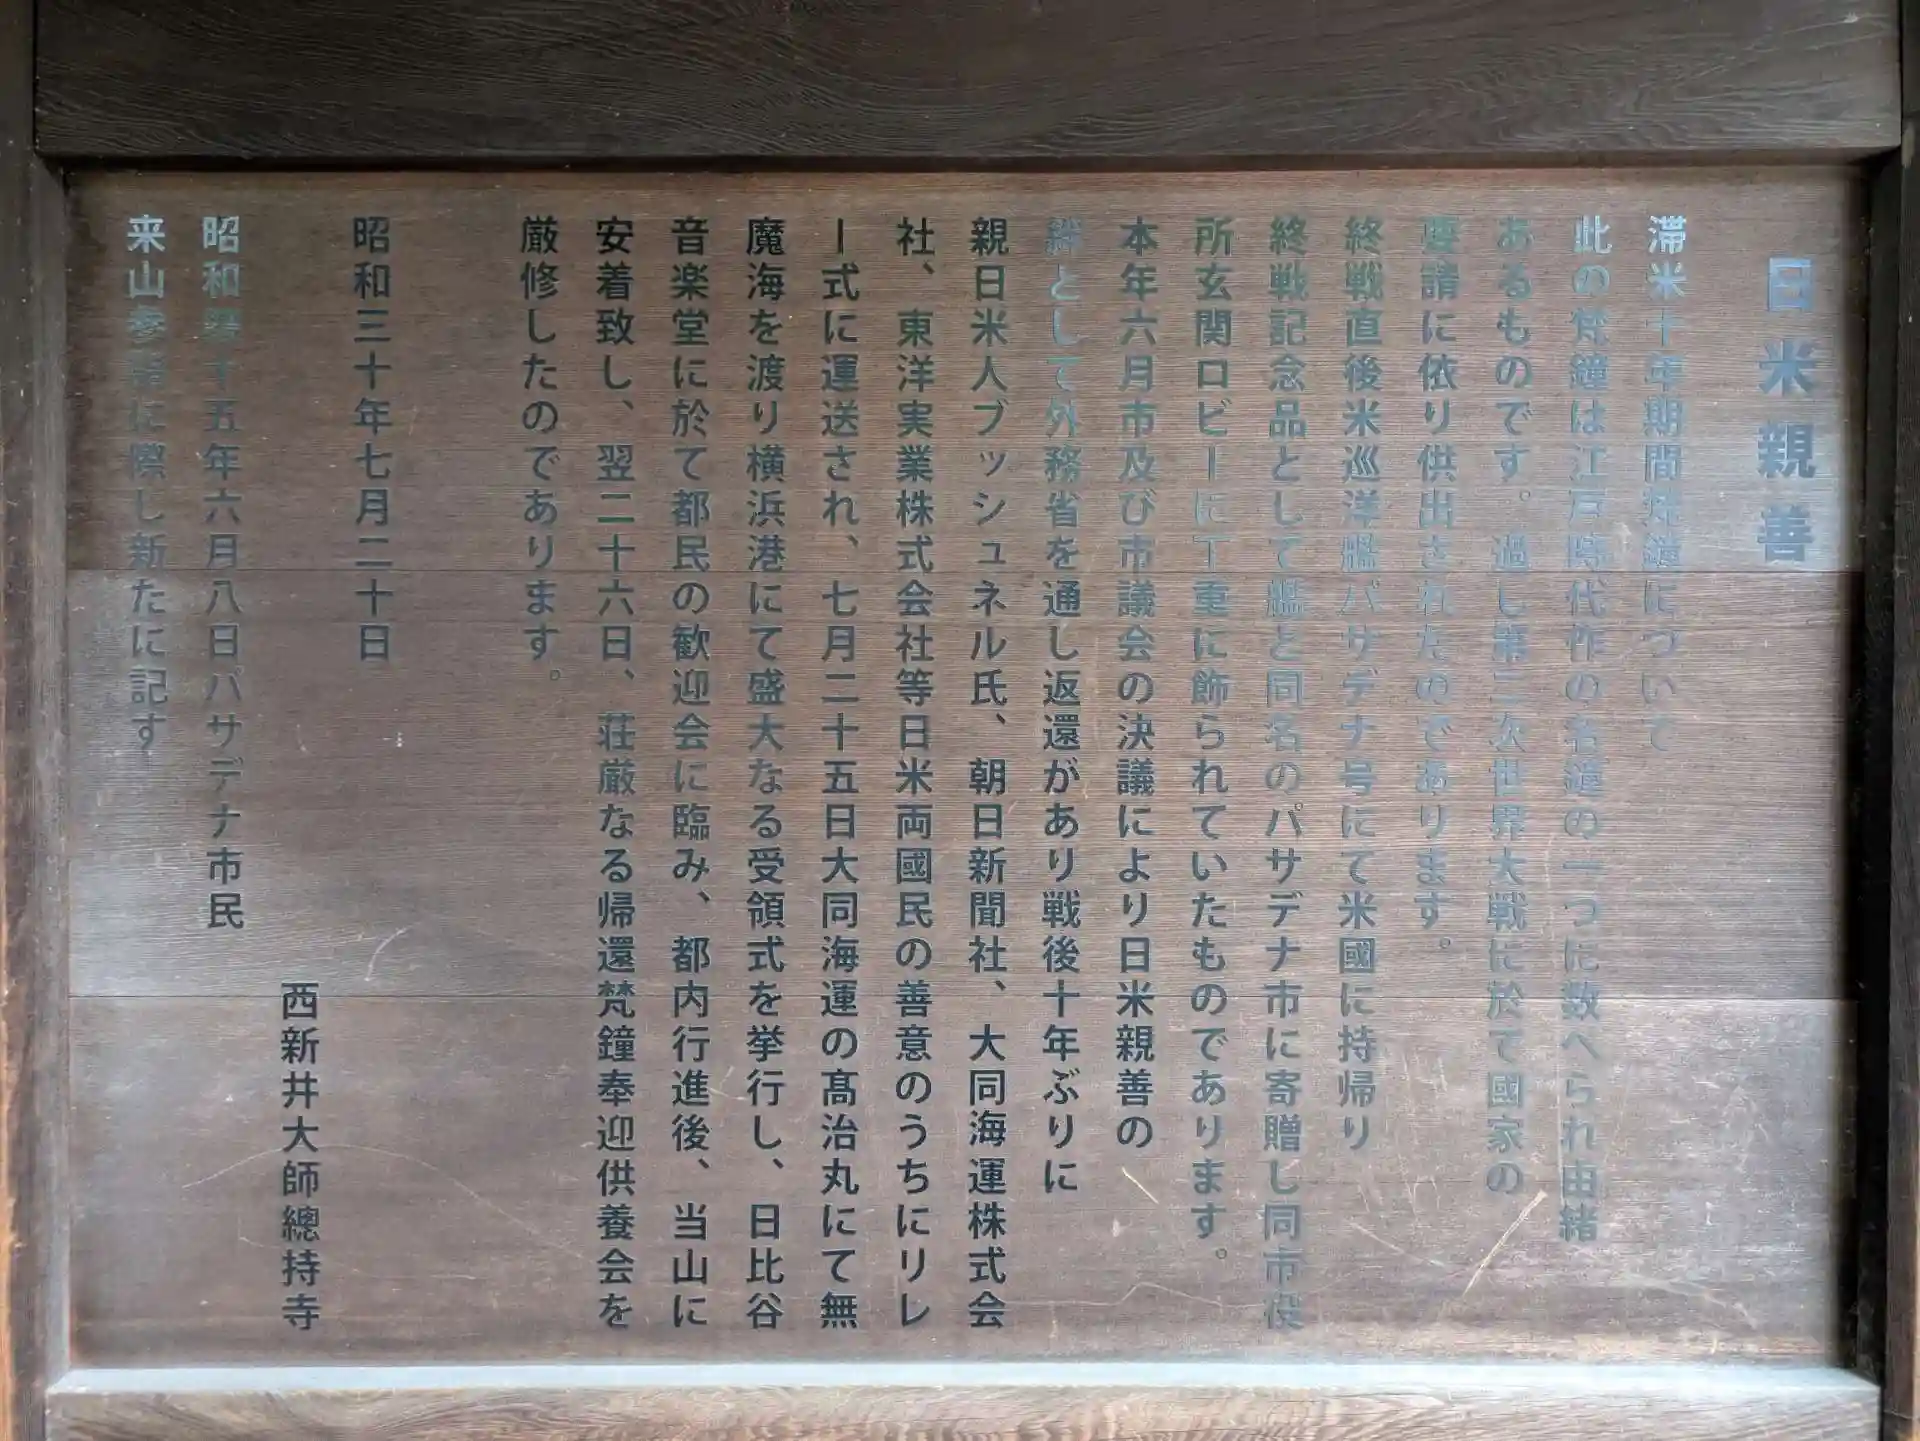 日米親善
滞米十年期間梵鐘について
此の梵鐘は江戸時代作の名鐘の一つに数へられ由緒
あるものです。過し第二次世界大戦に於て國家の
要請に依り供出されたのであります。
終戦直後米巡洋艦パサデナ号にて米國に持帰り
終戦記念品として艦と同名のパサデナ市に寄贈し同市役
所玄関ロビーに丁重に飾られていたものであります。
本年六月市及び市議会の決議により日米親善の
絆として外務省を通し返還があり戦後十年ぶりに
親日米人ブッシュネル氏、朝日新聞社、大同海運株式会
社、東洋実業株式会社等日米両國民の善意のうちにリレ
ー式に運送され、七月二十五日大同海運の髙治丸にて無
魔海を渡り横浜港にて盛大なる受領式を挙行し、日比谷
音楽堂に於て都民の歓迎会に臨み、都内行進後、当山に
安着致し、翌二十六日、荘厳なる帰還梵鐘奉迎供養会を
厳修したのであります。
昭和三十年七月二十日
西新井大師總持寺
昭和四十五年六月八日パサデナ市民
来山参詣に際し新たに記す